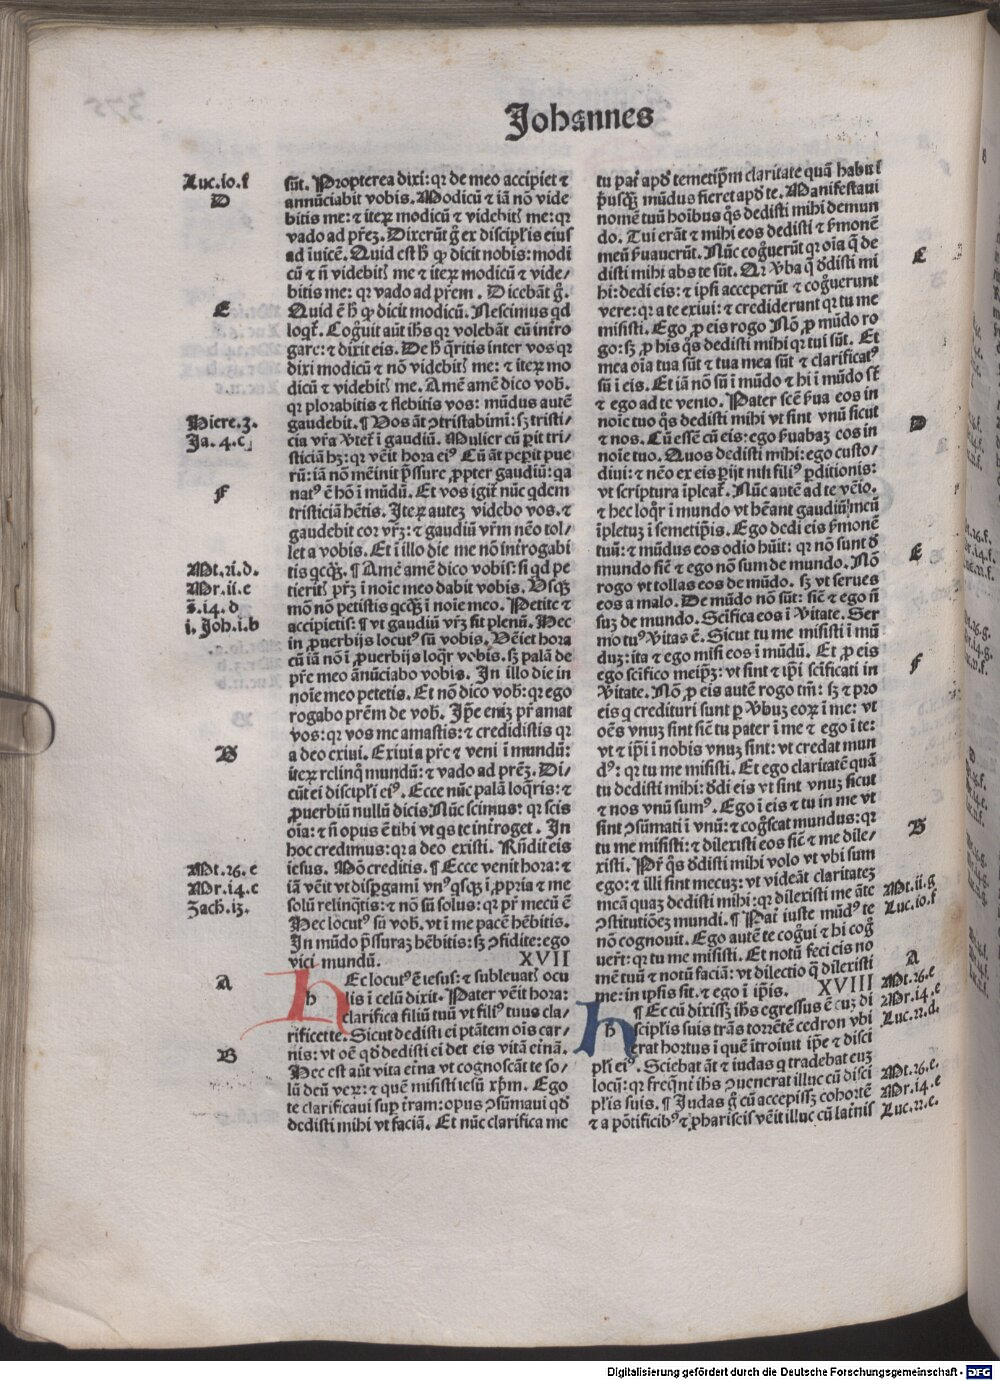 Johannes
Luc.io.f
D
E
Hiere.3.
Ja.4.c
F
Mt.ri.d.
Mr.ii.e
s.i4.d
i.Joh.i.b
B
Mt.26.e
Mr.i4.c
Zach.i3.
A
B
sūt. Propterea dixi: qꝛ de meo accipiet ⁊
annūciabit vobis. Modicū ⁊ iā nō vide
bitis me: ⁊ iteꝝ modicū ⁊ videbitꝭ me: qꝛ
vado ad prēꝫ. Dixerūt g̃ ex discipl'is eius
ad īuicē. Quid est h̄ ꝙ dicit nobis: modi
cū ⁊ n̄ videbitꝭ me ⁊ iteꝝ modicū ⁊ vide/
bitis me: qꝛ vado ad prēm. Dicebāt g̃.
Quid ē h̄ ꝙ dicit modicū. Nescimus qd
loqt̄. Cog̃uit aūt ihs qꝛ volebāt eū intro
gare: ⁊ dixit eis. De h̄ q̄ritis inter vos qꝛ
dixi modicū ⁊ nō videbitꝭ me: ⁊ iteꝝ mo
dicū ⁊ videbitꝭ me. Amē amē dico vob̄.
qꝛ plorabitis ⁊ flebitis vos: mūdus autē
gaudebit. ¶ Vos āt ↄtristabimī: sꝫ tristi/
cia vr̄a v̄tet̄ ī gaudiū. Mulier cū ꝑit tri/
sticiā hꝫ: qꝛ vēit hora eiꝰ Cū āt peꝑit pue
rū: iā nō meīnit p̄ssure ꝓpter gaudiū: qa
natꝰ ē hō ī mūdū. Et vos igit̄ nūc qdem
tristiciā hētis. Iteꝝ auteꝫ videbo vos. ⁊
gaudebit cor vr̄ꝫ: ⁊ gaudiū vr̄m nēo tol/
let a vobis. Et ī illo die me nō introgabi
tis qcqꝫ. ¶ Amē amē dico vobis: si qd pe
tieritꝭ pr̄ꝫ ī noīe meo dabit vobis. Vsqꝫ
mō nō petistis qcqꝫ ī noīe meo. Petite ⁊
accipietis: ¶ vt gaudiū vr̄ꝫ sit plenū. Hec
in ꝓuerbijs locutꝰ sū vobis. Vēiet hora
cū iā nō ī ꝓuerbijs loqr vobis. sꝫ palā de
pr̄e meo ānūciabo vobis. In illo die in
noīe meo petetis. Et nō dico vob̄: qꝛ ego
rogabo prēm de vob̄. Ip̄e eniꝫ pr̄ amat
vos: qꝛ vos me amastis: ⁊ credidistis qꝛ
a deo exiui. Exiui a pr̄e ⁊ veni ī mundū:
iteꝝ relinq̄ mundū: ⁊ vado ad prēꝫ. Di/
cūt ei discipl'i eiꝰ. Ecce nūc palā loq̄ris: ⁊
ꝓuerbiū nullū dicis. Nūc scimus: qꝛ scis
oīa: ⁊ n̄ opus ē tibi vt qs te introget. In
hoc credimus: qꝛ a deo existi. Rn̄dit eis
iesus. Mō creditis. ¶ Ecce venit hora: ⁊
iā vēit vt disꝑgamī vnꝰqsqꝫ ī ꝓpria ⁊ me
solū relinq̄tis: ⁊ nō sū solus: qꝛ pr̄ mecū ē
Hec locutꝰ sū vob̄. vt ī me pacē hēbitis.
In mūdo p̄ssuraꝫ hēbitis: sꝫ ↄfidite: ego
vici mundū. XVII
h Ec locutꝰ ē iesus: ⁊ subleuatꝭ ocu
lis ī celū dixit. Pater vēit hora:
clarifica filiū tuū vt filiꝰ tuus cla/
rificet te. Sicut dedisti ei ptātem oīs car/
nis: vt oē qd dedisti ei det eis vitā et̄nā.
Hec est aūt vita et̄na vt cognoscāt te so/
lū deū veꝝ: ⁊ quē misisti iesū xp̄m. Ego
te clarificaui suꝑ t̄ram: opus ↄsūmaui qd
dedisti mihi vt faciā. Et nūc clarifica me
tu pat̄ apd temetip̄m claritate quā habui
p̄usqꝫ mūdus fieret apd te. Manifestaui
nomē tuū hoībus q̄s dedisti mihi de mun
do. Tui erāt ⁊ mihi eos dedisti ⁊ s̄monē
meū s̄uauerūt. Nūc cog̃uerūt qꝛ oīa q̄ de
disti mihi abs te sūt. Qꝛ v̄ba q̄ d̄disti mi
hi: dedi eis: ⁊ ipsi acceperūt ⁊ cog̃uerunt
vere: qꝛ a te exiui: ⁊ crediderunt qꝛ tu me
misisti. Ego ꝓ eis rogo Nō ꝓ mūdo ro
go: sꝫ ꝓ his q̄s dedisti mihi qꝛ tui sūt. Et
mea oīa tua sūt ⁊ tua mea sūt ⁊ clarificatꝰ
sū ī eis. Et iā nō sū ī mūdo ⁊ hi ī mūdo st̄
⁊ ego ad te venio. Pater scē s̄ua eos in
noīe tuo q̄s dedisti mihi vt sint vnū sicut
⁊ nos. Cū essē cū eis: ego s̄uabaꝫ eos in
noīe tuo. Quos dedisti mihi: ego custo/
diui: ⁊ nēo ex eis ꝑijt nisi filiꝰ ꝑditionis:
vt scriptura īpleat̄. Nūc autē ad te vēio.
⁊ hec loqr ī mundo vt heāt gaudiū meū
īpletuꝫ ī semetip̄is. Ego dedi eis s̄monē
tuū: ⁊ mūdus eos odio hūit: qꝛ nō sunt d̄
mundo sic̄ ⁊ ego nō sum de mundo. Nō
rogo vt tollas eos de mūdo. sꝫ vt serues
eos a malo. De mūdo nō sūt: sic̄ ⁊ ego n̄
suꝫ de mundo. Scīfica eos ī v̄itate. Ser
mo tuꝰ v̄itas ē. Sicut tu me misisti ī mū
duꝫ: ita ⁊ ego misi eos ī mūdū. Et ꝓ eis
ego scīfico meip̄ꝫ: vt sint ⁊ ip̄i scīficati in
v̄itate. Nō ꝓ eis autē rogo tm̄: sꝫ ⁊ pro
eis q credituri sunt ꝑ v̄buꝫ eoꝝ ī me: vt
oēs vnuꝫ sint sic̄ tu pater ī me ⁊ ego ī te:
vt ⁊ ip̄i ī nobis vnuꝫ sint: vt credat mun
dꝰ: qꝛ tu me misisti. Et ego claritatē quā
tu dedisti mihi: d̄di eis vt sint vnuꝫ sicut
⁊ nos vnū sumꝰ. Ego ī eis ⁊ tu in me vt
sint ↄsūmati ī vnū: ⁊ cog̃scat mundus: qꝛ
tu me misisti: ⁊ dilexisti eos sic̄ ⁊ me dile/
xisti. Pr̄ q̄s d̄disti mihi volo vt vbi sum
ego: ⁊ illi sint mecuꝫ: vt videāt claritateꝫ
meā quaꝫ dedisti mihi: qꝛ dilexisti me āte
ↄstitutiōeꝫ mundi. ¶ Pat̄ iuste mūdꝰ te
nō cognouit. Ego autē te cog̃ui ⁊ hi cog̃
uert̄: qꝛ tu me misisti. Et notū feci eis no
mē tuū ⁊ notū faciā: vt dilectio q̄ dilexisti
me: in ipsis sit. ⁊ ego ī ip̄is. XVIII
h ¶ Ec cū dixissꝫ ihs egressus ē cuꝫ di
scipl'is suis trās torrētē cedron vbi
erat hortus ī quē itroiuit ip̄e ⁊ disci
pl'i eiꝰ. Sciebat āt ⁊ iudas q tradebat euꝫ
locū: qꝛ freqn̄t ihs ↄuenerat illuc cū disci
pl'is suis. ¶ Judas g̃ cū accepissꝫ cohortē
⁊ a pōtificibꝰ ⁊ phariseis vēit illuc cū lat̄nis
C
D
E
F
B
Mt.ii.g
Luc.io.f
A
Mt.26.e
Mr.i4.e
Luc.22.d.
Mt.26.e.
Mr.i4.e
Luc.22.e.
Digitalisierung gefördert durch die Deutsche Forschungsgemeinschaft - DFG